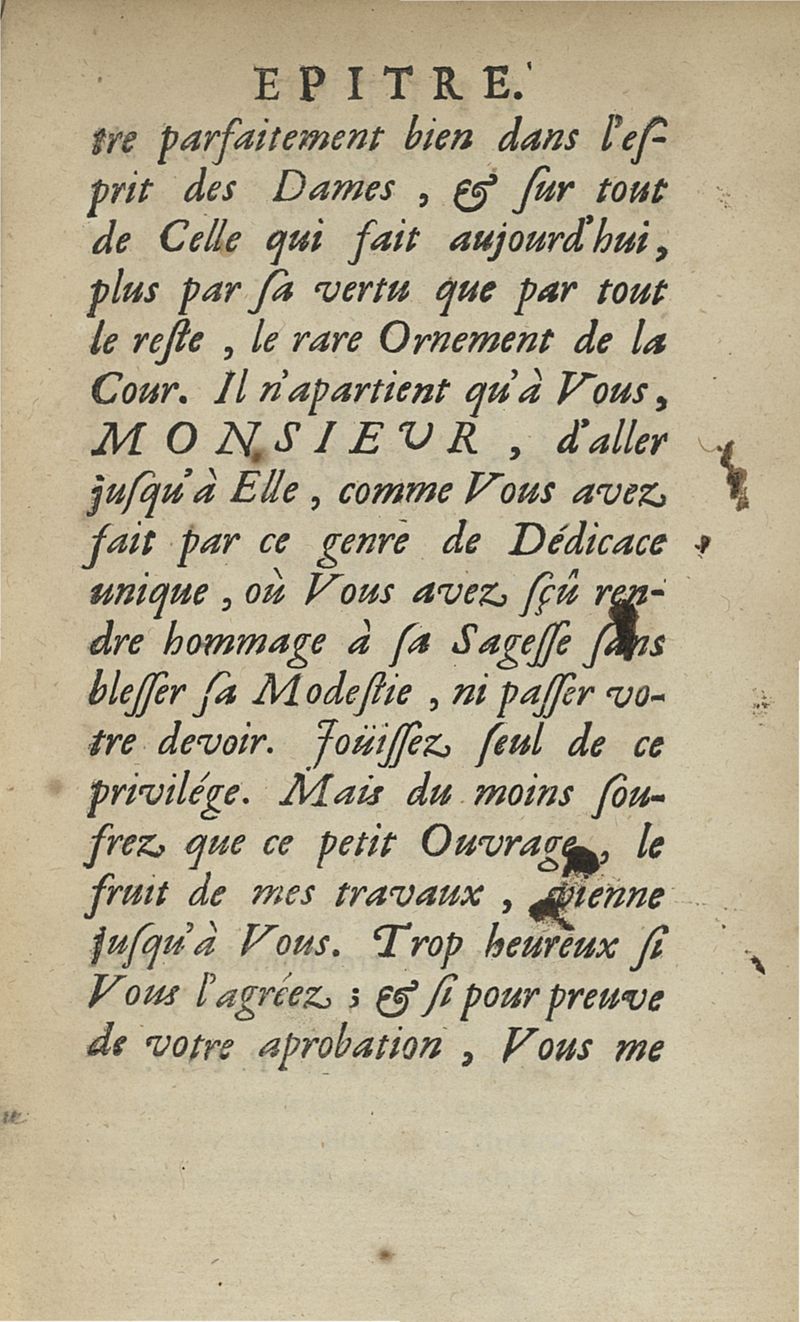 EPITRE.
tre parfaitement bien dans l'eſ-
prit des Dames , & ſur tout
de Celle qui fait aujourd'hui,
plus par ſa vertu que par tout
le reſte , le rare Ornement de la
Cour. Il n'apartient qu'à Vous,
MONSIEUR , d'aller
juſqu'à Elle , comme Vous avez
fait par ce genre de Dédicace
unique , où Vous avez ſçû ren-
dre hommage à ſa Sageſſe ſans
bleſſer ſa Modeſtie , ni paſſer vo-
tre devoir. Joüiſſez ſeul de ce
privilége. Mais du moins ſou-
frez que ce petit Ouvrage, le
fruit de mes travaux , vienne
juſqu'à Vous. Trop heureux ſi
Vous l'agréez ; & ſi pour preuve
de votre aprobation , Vous me